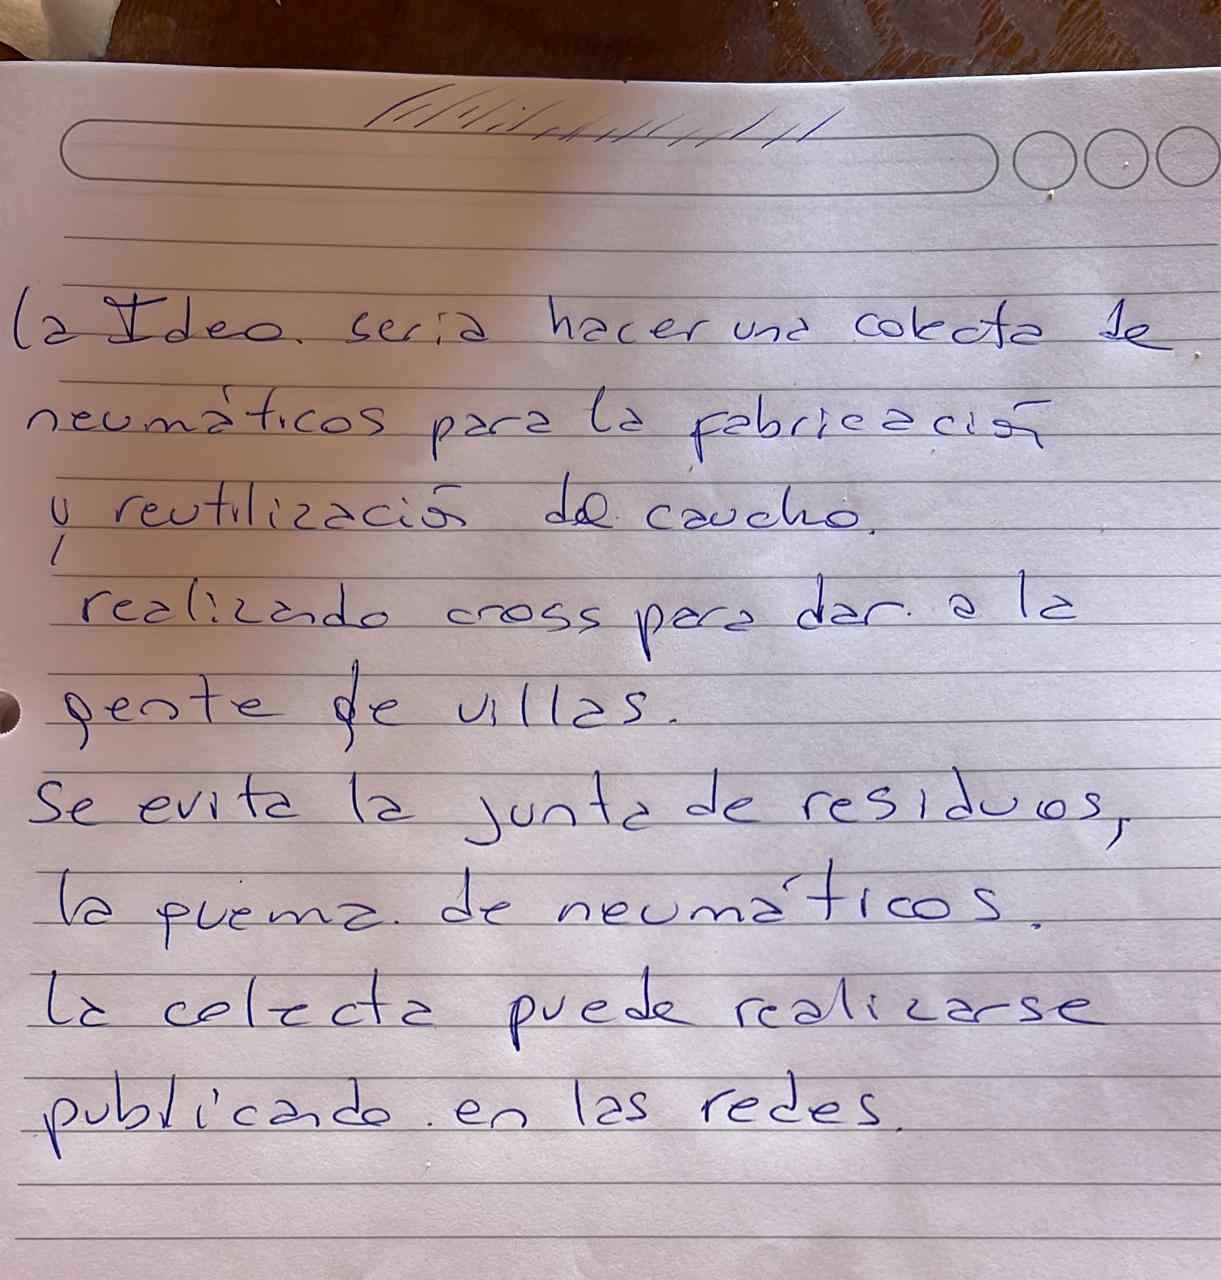 La Idea. seria hacer una colecta de
neumáticos para la fabricación
y reutilización de caucho.
realizando cross para dar a la
gente de villas.
Se evita la junta de residuos,
la quema de neumáticos.
La colecta puede realizarse
publicando en las redes.